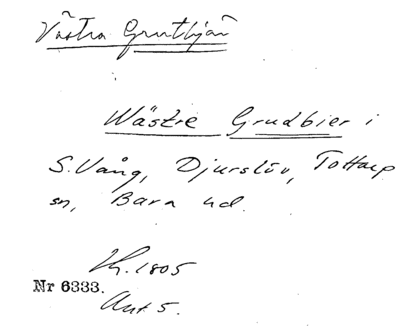 Västra Grutbjär
Wästre Grudbier i
S. Vång, Djurslöv, Tottarp
sn, Bara hd.
Lh. 1805
Nr 6333.
Akt 5.